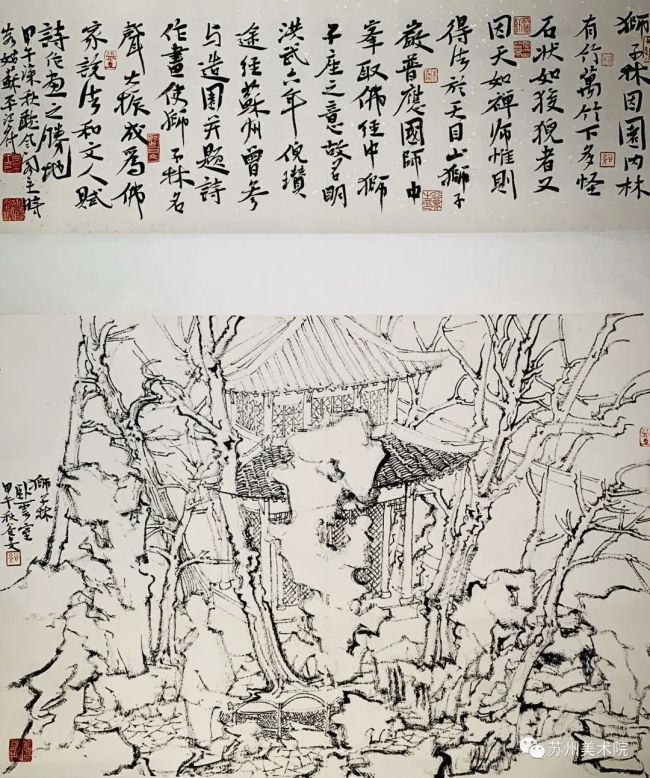 獅子林因園内林
有竹萬竹下多怪
石狀如狻猊者又
因天如禪師惟則
得法於天目山獅子
巖普應國師中
峯取佛經中獅
子座之意故名明
洪武六年倪瓚
途徑蘇州曾參
与造園并題詩
作畫使獅子林名
聲大振成爲佛
家說法和文人賦
詩作畫之勝地
甲午深秋
時
姑蘇
獅子林
臥雲室
甲午秋
苏州美术院